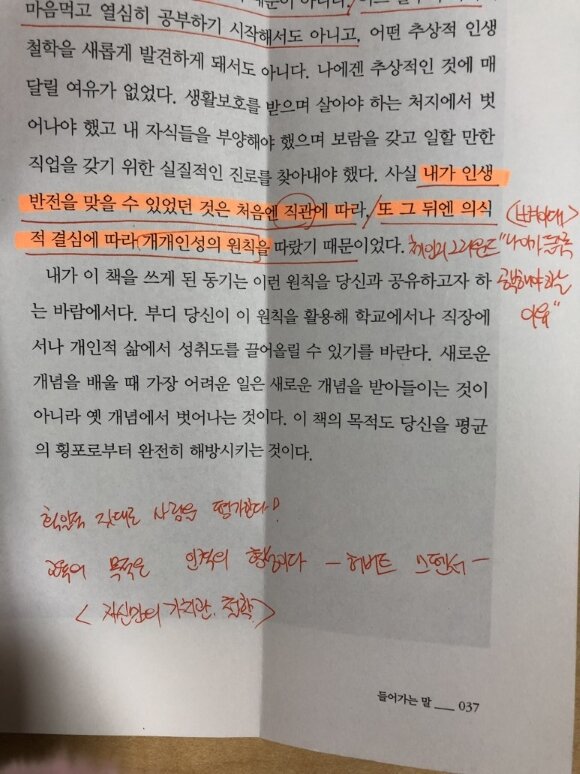 마음먹고 열심히 공부하기 시작해서도 아니고, 어떤 추상적 인생
철학을 새롭게 발견하게 돼서도 아니다. 나에겐 추상적인 것에 매
달릴 여유가 없었다. 생활보호를 받으며 살아야 하는 처지에서 벗
어나야 했고 내 자식들을 부양해야 했으며 보람을 갖고 일할 만한
직업을 갖기 위한 실질적인 진로를 찾아내야 했다. 사실 내가 인생
반전을 맞을 수 있었던 것은 처음엔 직관에 따라, 또 그 뒤엔 의식
적 결심에 따라 개개인성의 원칙을 따랐기 때문이었다.
"나이가 들수록
행복해야 하는
이유"
내가 이 책을 쓰게 된 동기는 이런 원칙을 당신과 공유하고자 하
는 바람에서다. 부디 당신이 이 원칙을 활용해 학교에서나 직장에
서나 개인적 삶에서 성취도를 끌어올릴 수 있기를 바란다. 새로운
개념을 배울 때 가장 어려운 일은 새로운 개념을 받아들이는 것이
아니라 옛 개념에서 벗어나는 것이다. 이 책의 목적도 당신을 평균
의 횡포로부터 완전히 해방시키는 것이다.
획일적 잣대로 사람을 평가한다!
교육의 목적은 인격의 형성이다 - 허버트 스펜서 -
< 자신만의 가치관. 철학. >
들어가는 말 __ 037